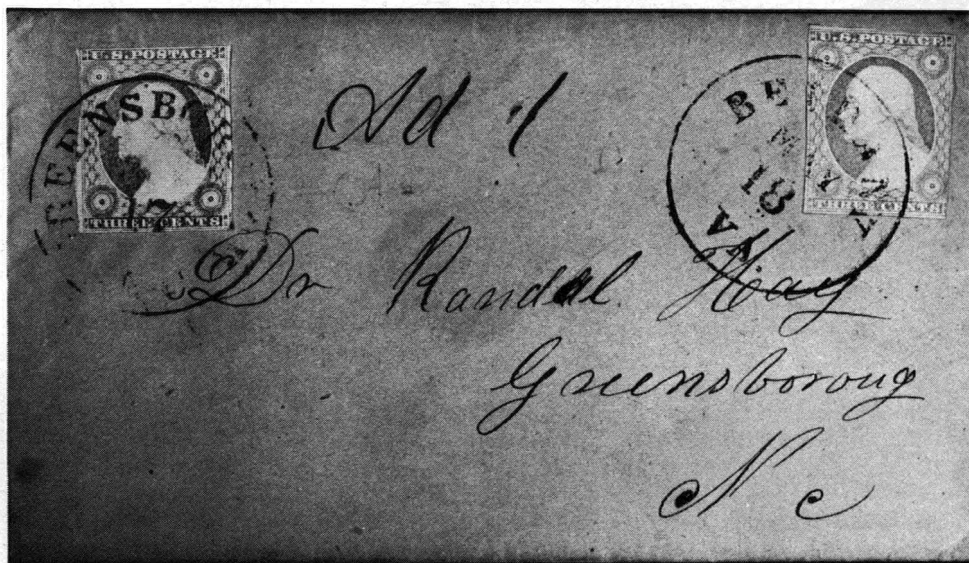 U.S. POSTAGE
THREE CENTS
U.S. POSTAGE
THREE CENTS
18
VA
Ad 1
Dr Randal Hay
Greensboroug
N c